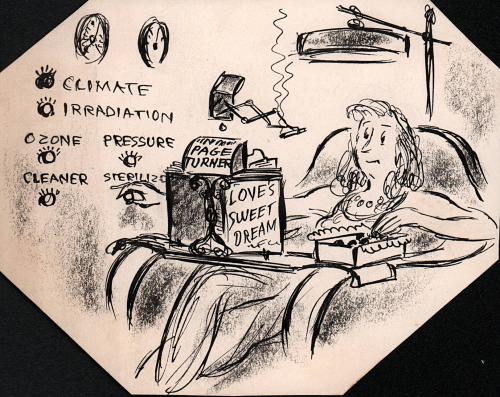 CLIMATE
IRRADIATION
OZONE PRESSURE
CLEANER STERILIZ
PAGE
TURNER
LOVE'S
SWEET
DREAM